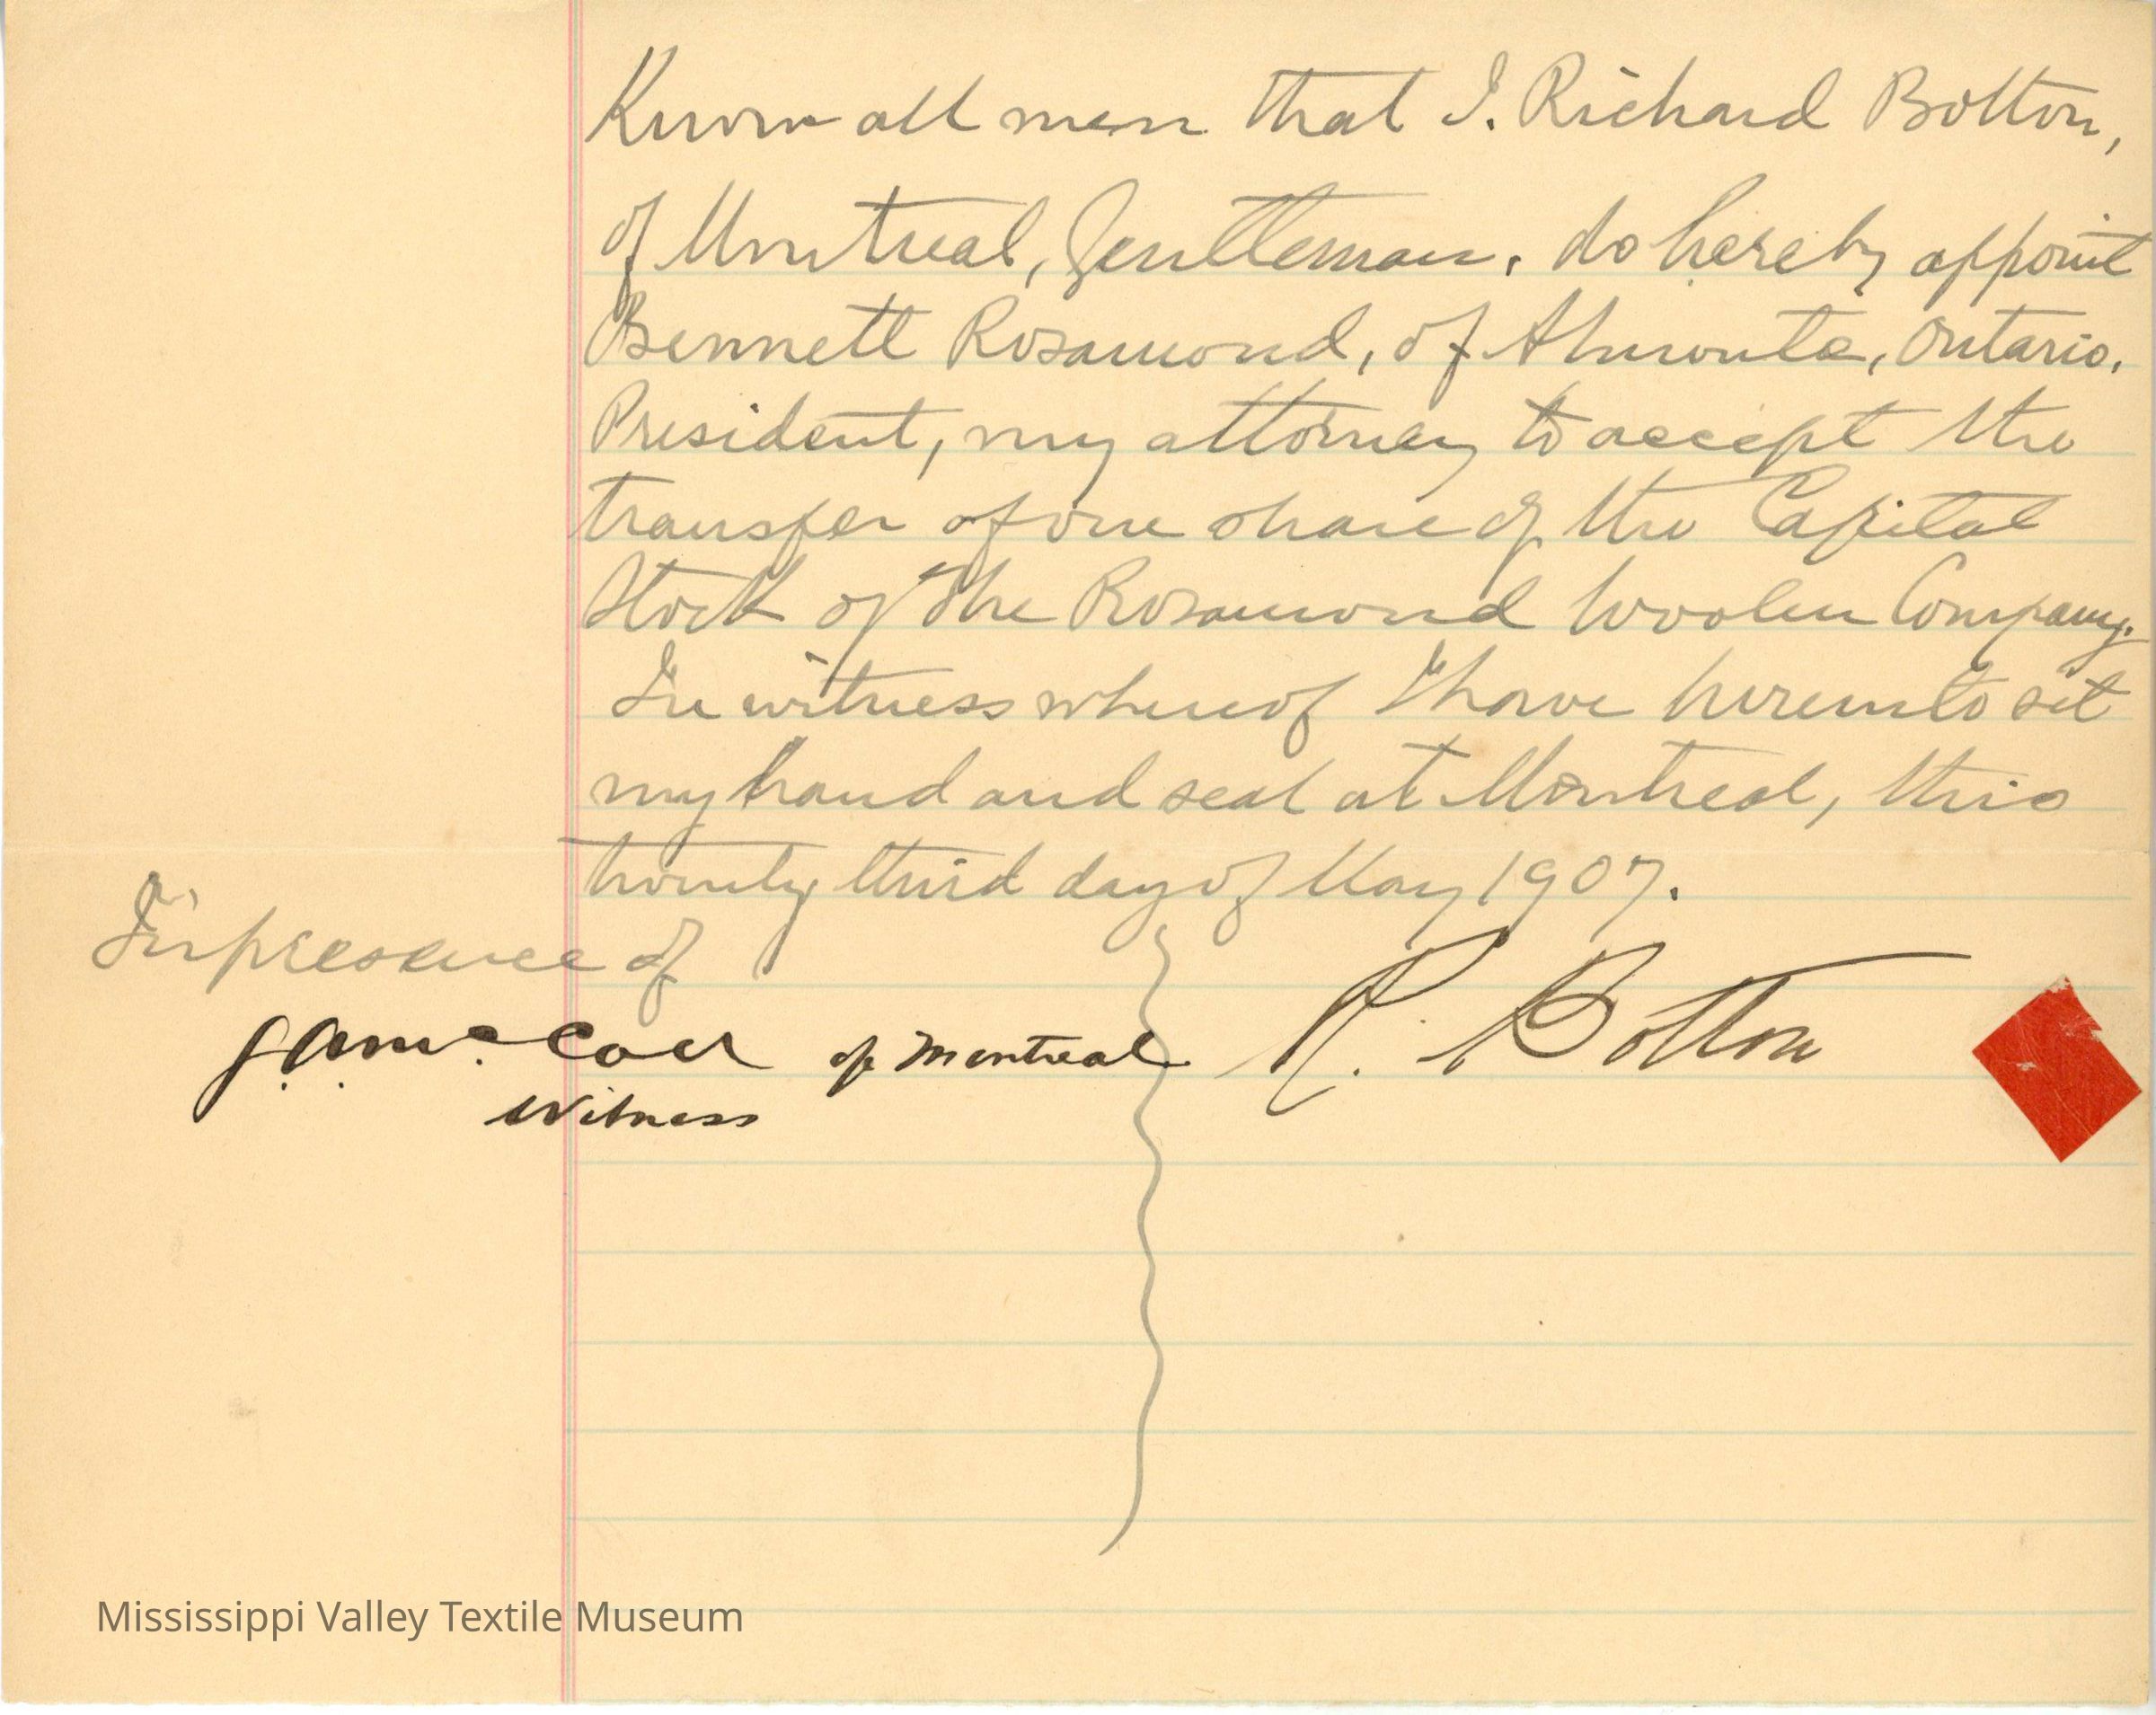 Know all men that I. Richard Bolton,
of Montreal, Gentleman, do hereby appoint
Bennett Rosamond, of Almonte, Ontario.
President, my attorney to accept the
transfer of one share of the Capital
Stock of "The Rosamond Woolen Company.
In witness whereof I have hereunto set
my hand and seal at Montreal, this
twenty third day of May 1907.
In presence of
of Montreal
R. Bolton
Witness
Mississippi Valley Textile Museum